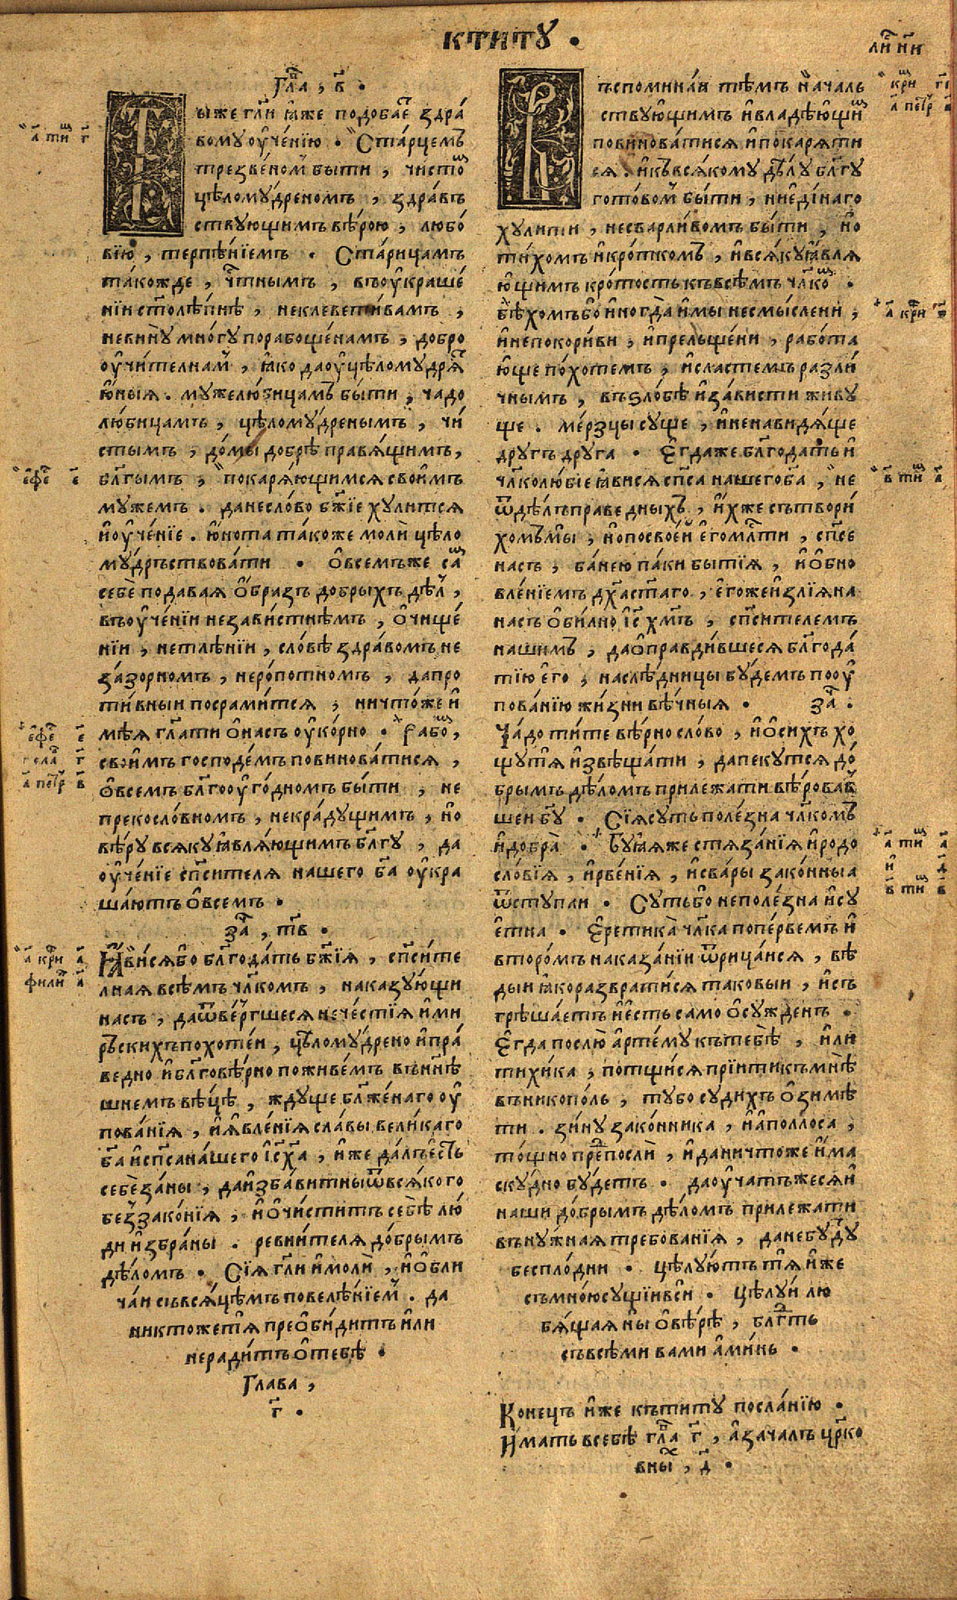 КТИТꙊ .
ли́ и҃и
Гла̑ , в҃ .
Ты́же гл҃и ꙗ҆́же подобае҆ здра́
вомꙋ ᲂу҆че́нїю . Ста́рцемъ
трезве́номъ бы́ти , чи́сто
цѣломꙋ́дреномъ , здра́въ
ствꙋющимъ вѣ́рою , любо́
вїю , терпѣ́нїемъ . Ста́рицамъ
та́кожде , чⷭ҇тнымъ , въᲂу҆краше́
нїи ст҃олѣ́пнѣ , неклеветли́вамъ ,
невинꙋ̀ мно́гꙋ порабоще́намъ , добро
ᲂучи́телнамъ , ꙗ҆́ко даᲂу҆цѣломꙋ́дрѧ
ю҆́ныѧ . мꙋжелю́бицамъ бы́ти , ча́до
лю́бицамъ , цѣломꙋ́дренымъ , чи́
стымъ , до́мы добрѣ̀ пра́вѧщимъ ,
бл҃ги́мъ , покарѧ́ющимсѧ свои́мъ
мꙋже́мъ . данесло́во бж҃їе хꙋ́литсѧ
и҆ᲂуче́нїе . ю҆́ноша та́коже моли̑ цѣло
мꙋ́дръствовати . Ѡ҆всемъже са́мъ
себѐ пода́ваѧ ѻ҆́бразъ до́брыхъ дѣ́лъ ,
въᲂу҆че́нїи незави́стнѣмъ , ѡ҆чище́
нїи , нетлѣ́нїи , сло́вѣ здра́вомъ не
за́зорномъ , неро́потномъ , дапро
ти́вныи посрами́тсѧ , ничто́же и҆
мѣ́ѧ гл҃ати ѡ҆на́съ ᲂу҆ко́рно . Рабо́мъ ,
свои́мъ господе́мъ повинова́тисѧ ,
ѡ҆всемъ бл҃гоᲂу҆го́дномъ бы́ти , не
прекосло́вномъ , некра́дꙋщимъ , но
вѣ́рꙋ всѧ́кꙋ ꙗ҆влѧ́ющимъ бл҃гꙋ , да
ᲂу҆че́нїе сп҃си́телѧ нашего бг҃а ᲂу҆кра
ша́ютъ ѡ҆всемъ .
за̑ , тв҃ .
Ꙗ҆ви́сѧбо бл҃года́ть бж҃їѧ , сп҃си́те
лнаѧ всѣ́мъ чл҃комъ , наказꙋ́ющи
насъ , даѿве́ргшесѧ нече́стїѧ и҆ми
рьски́хъпохоте́и , цѣломꙋ́дрено и҆пра́
ведно и҆бл҃говѣ́рно поживе́мъ вънн҃ѣ
шнемъ вѣ́цѣ , ждꙋ́ще бл҃же́наго ᲂу҆
пова́нїѧ , и҆ꙗ҆вле́нїѧ сла́вы вели́каго
бг҃а и҆сп҃сана́шего і҆с҃ х҃а , и҆́же да́лъе҆́сть
себѐза́ны , даи҆зба́витныѿвсѧ́кого
без̾зако́нїѧ , и҆ѡ҆чи́ститъ себѣ̀ лю́
ди и҆збра́ны . ревни́телѧ до́брымъ
дѣ́ломъ . Сїѧ̀ гл҃и и҆моли̑ , и҆ѡ҆бли
ча́и съвсѧ́цѣмъ повелѣ́нїемъ . да
никто́жетѧ̀ преѡ҆би́дитъ и҆ли
неради́тъ ѡ҆тебѣ̀ .
Глава ,
г҃ .
Въспомина́и тѣ́мъ нача́лъ
ствꙋю҆щимъ и҆владѣ́ющимъ
повинова́тисѧ и҆покарѧ́ти
сѧ . и҆къвсѧ́комꙋ дѣ́лꙋ бл҃гꙋ
гото́вомъ бы́ти , ниедї́наго
хꙋ́лити , несварли́вомъ бы́ти , но
ти́хомъ и҆кро́ткомъ , и҆всѧ́кꙋꙗ҆влѧ
ю҆щимъ кро́тость къвсѣ́мъ чл҃комъ .
Бѣ́хомъбо и҆ногда̀ и҆мы̀ несмы́слени ,
и҆непокори́ви , и҆прельще́ни , рабо́та
ю҆ще по́хотемъ , и҆сластемъ разли́
чнымъ , въѕло́бѣ и҆за́висти живꙋ
ще . ме́рзцы сꙋще , и҆ненави́дѧще
дрꙋгъ дрꙋга . Е҆гда́же бл҃года́ть и҆
чл҃колю́бїе ꙗ҆ви́сѧ сп҃са нашегобг҃а , не
ѿдѣ́лъпра́ведныхъ , и҆́хже сътвори́
хомъмы̀ , но́посвое́и е҆гомл҃сти , сп҃се
насъ , ба́нею па́ки бытїѧ̀ , и҆ѡ҆бно
вле́нїемъ дх҃аст҃аго , е҆го́жеи҆злїѧ̀на
насъ ѻ҆би́лно і҆с҃ х҃мъ , сп҃си́телемъ
нашимъ , даѡ҆правди́вшесѧ бл҃года́
тїю е҆го , наслѣ́дницы бꙋ́демъ поᲂу҆
пова́нїю жи́зни вѣ́чныѧ . за̑ .
Чадо ти́те вѣ́рно сло́во , и҆ѡ҆си́хъ хо
щꙋ́тѧ и҆звѣща́ти , дапекꙋ́тсѧ до́
брымъ дѣ́ломъ прилежа́ти вѣ́ровав
шеи бг҃ꙋ . Сїѧсꙋть поле́зна чл҃комъ
и҆добра̀ . Бꙋ́ꙗѧже стѧза́нїѧ и҆родо
сло́вїѧ , и҆рве́нїѧ , и҆сва́ры зако́нныꙗ
ѿстꙋ́паи . Сꙋ́тьбо неполе́зна и҆сꙋ
е҆тна . Е҆ретика̀ чл҃ка попе́рвемъ и҆
второ́мъ наказа́нїи ѿрица́исѧ , вѣ́
дыи ꙗ҆коразврати́сѧ таковы́и , и҆съ
грѣша́етъ и҆е҆́сть само ѡ҆сꙋжденъ .
Е҆гда послю̀ а҆рте́мꙋ къ тебѣ̀ , и҆ли
тихи́ка , потщи́сѧ прїи́тикъмнѣ̀
въникопо́ль , тꙋ́бо сꙋди́хъ ѡ҆зимѣ̀
ти . зи́нꙋ зако́нника , и҆а҆поллоса ,
то́щно пре́посли̑ , и҆даничто́же и҆ма
скꙋ́дно бꙋ́детъ . даᲂу҆ча́тъжесѧи҆
на́ши до́брымъ дѣ́ломъ прилежа́ти
внꙋ́жнаѧ тре́бованїѧ , данебꙋ́дꙋ
беспло́дни . цѣлꙋ́ютъ тѧ̀ и҆́же
съмно́ю сꙋщїивси̑ . цѣлꙋ́и лю
бѧ́щаѧ ны ѡ҆вѣ́рѣ , бл҃гть
съвсѣ́ми ва́ми а҆ми́нь .
Коне́цъ и҆́же къти́тꙋ посла́нїю .
И҆мать всебѣ̀ гла̑ г҃ , а҆зача́лъ цр҃ко
вны̑ , д҃ .